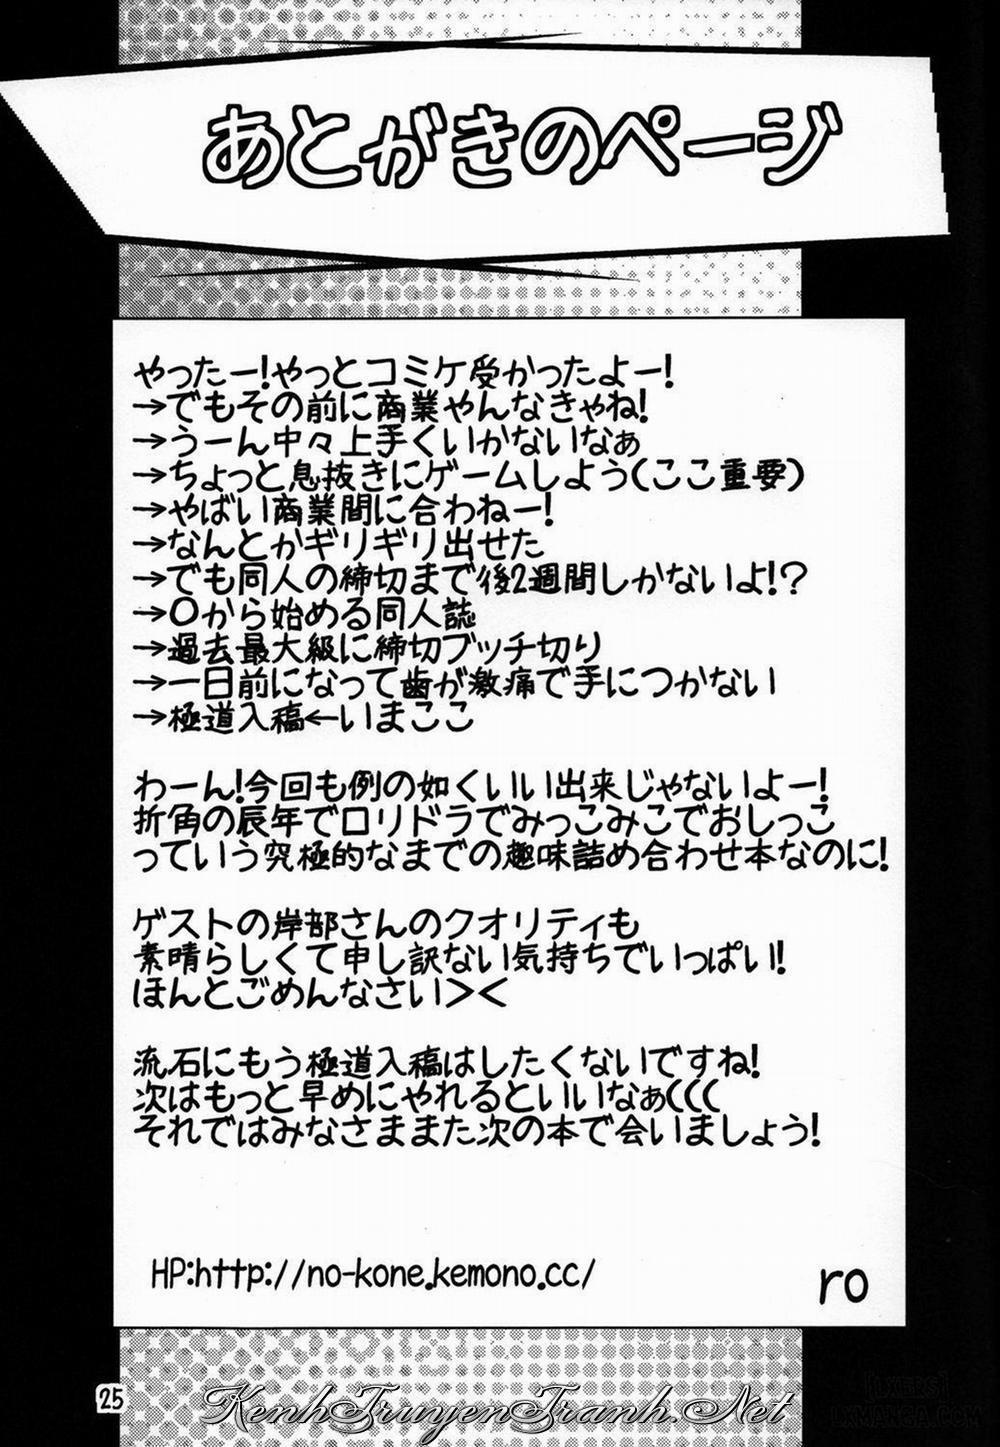 あとがきのページ
やったー!やっとコミケ受かったよー!
→でもその前に商業やんなきゃね!
→うーん中々上手くいかないなぁ
→ちょっと息抜きにゲームしよう(ここ重要)
→やばい商業間に合わねー!
→なんとかギリギリ出せた
→でも同人の締切まで後2週間しかないよ!?
→〇から始める同人誌
→過去最大級に締切ブッチ切り
→一日前になって歯が激痛で手につかない
→極道入稿←いまここ
わーん!今回も例の如くいい出来じゃないよー!
折角の辰年でロリドラでみっこみこでおしっこ
っていう究極的なまでの趣味詰め合わせ本なのに!
ゲストの岸部さんのクオリティも
素晴らしくて申し訳ない気持ちでいっぱい!
ほんとごめんなさい><
流石にもう極道入稿はしたくないですね!
次はもっと早めにやれるといいなぁ(((
それではみなさままた次の本で会いましょう!
HP:http://no-kone.kemono.cc/
ro
25
KenhTruyenTranh.Net
[LXERS]
LXMANGA.COM